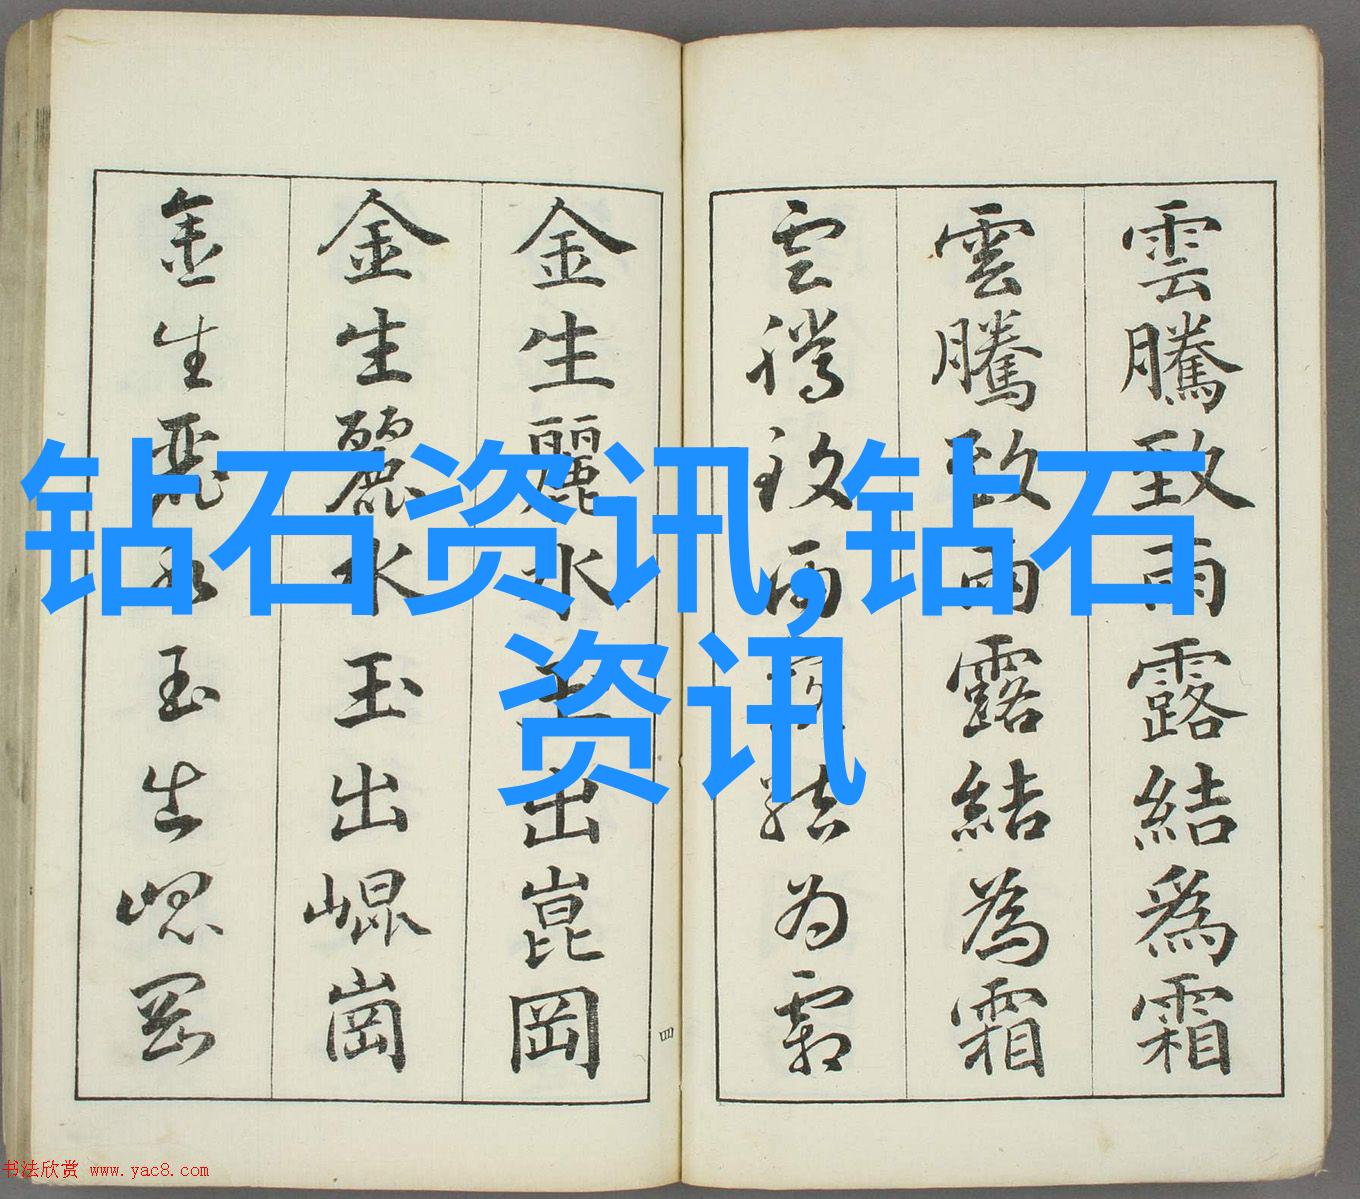 雲騰致雨露結爲霜
雲騰致雨露結為霜
雲騰致雨露结为霜
四
金生麗水玉出崑岡
金生麗水玉出崐崗
金生麗水玉出崐岡
钻石资讯,钻石
资讯
书法欣赏 www.yac8.com